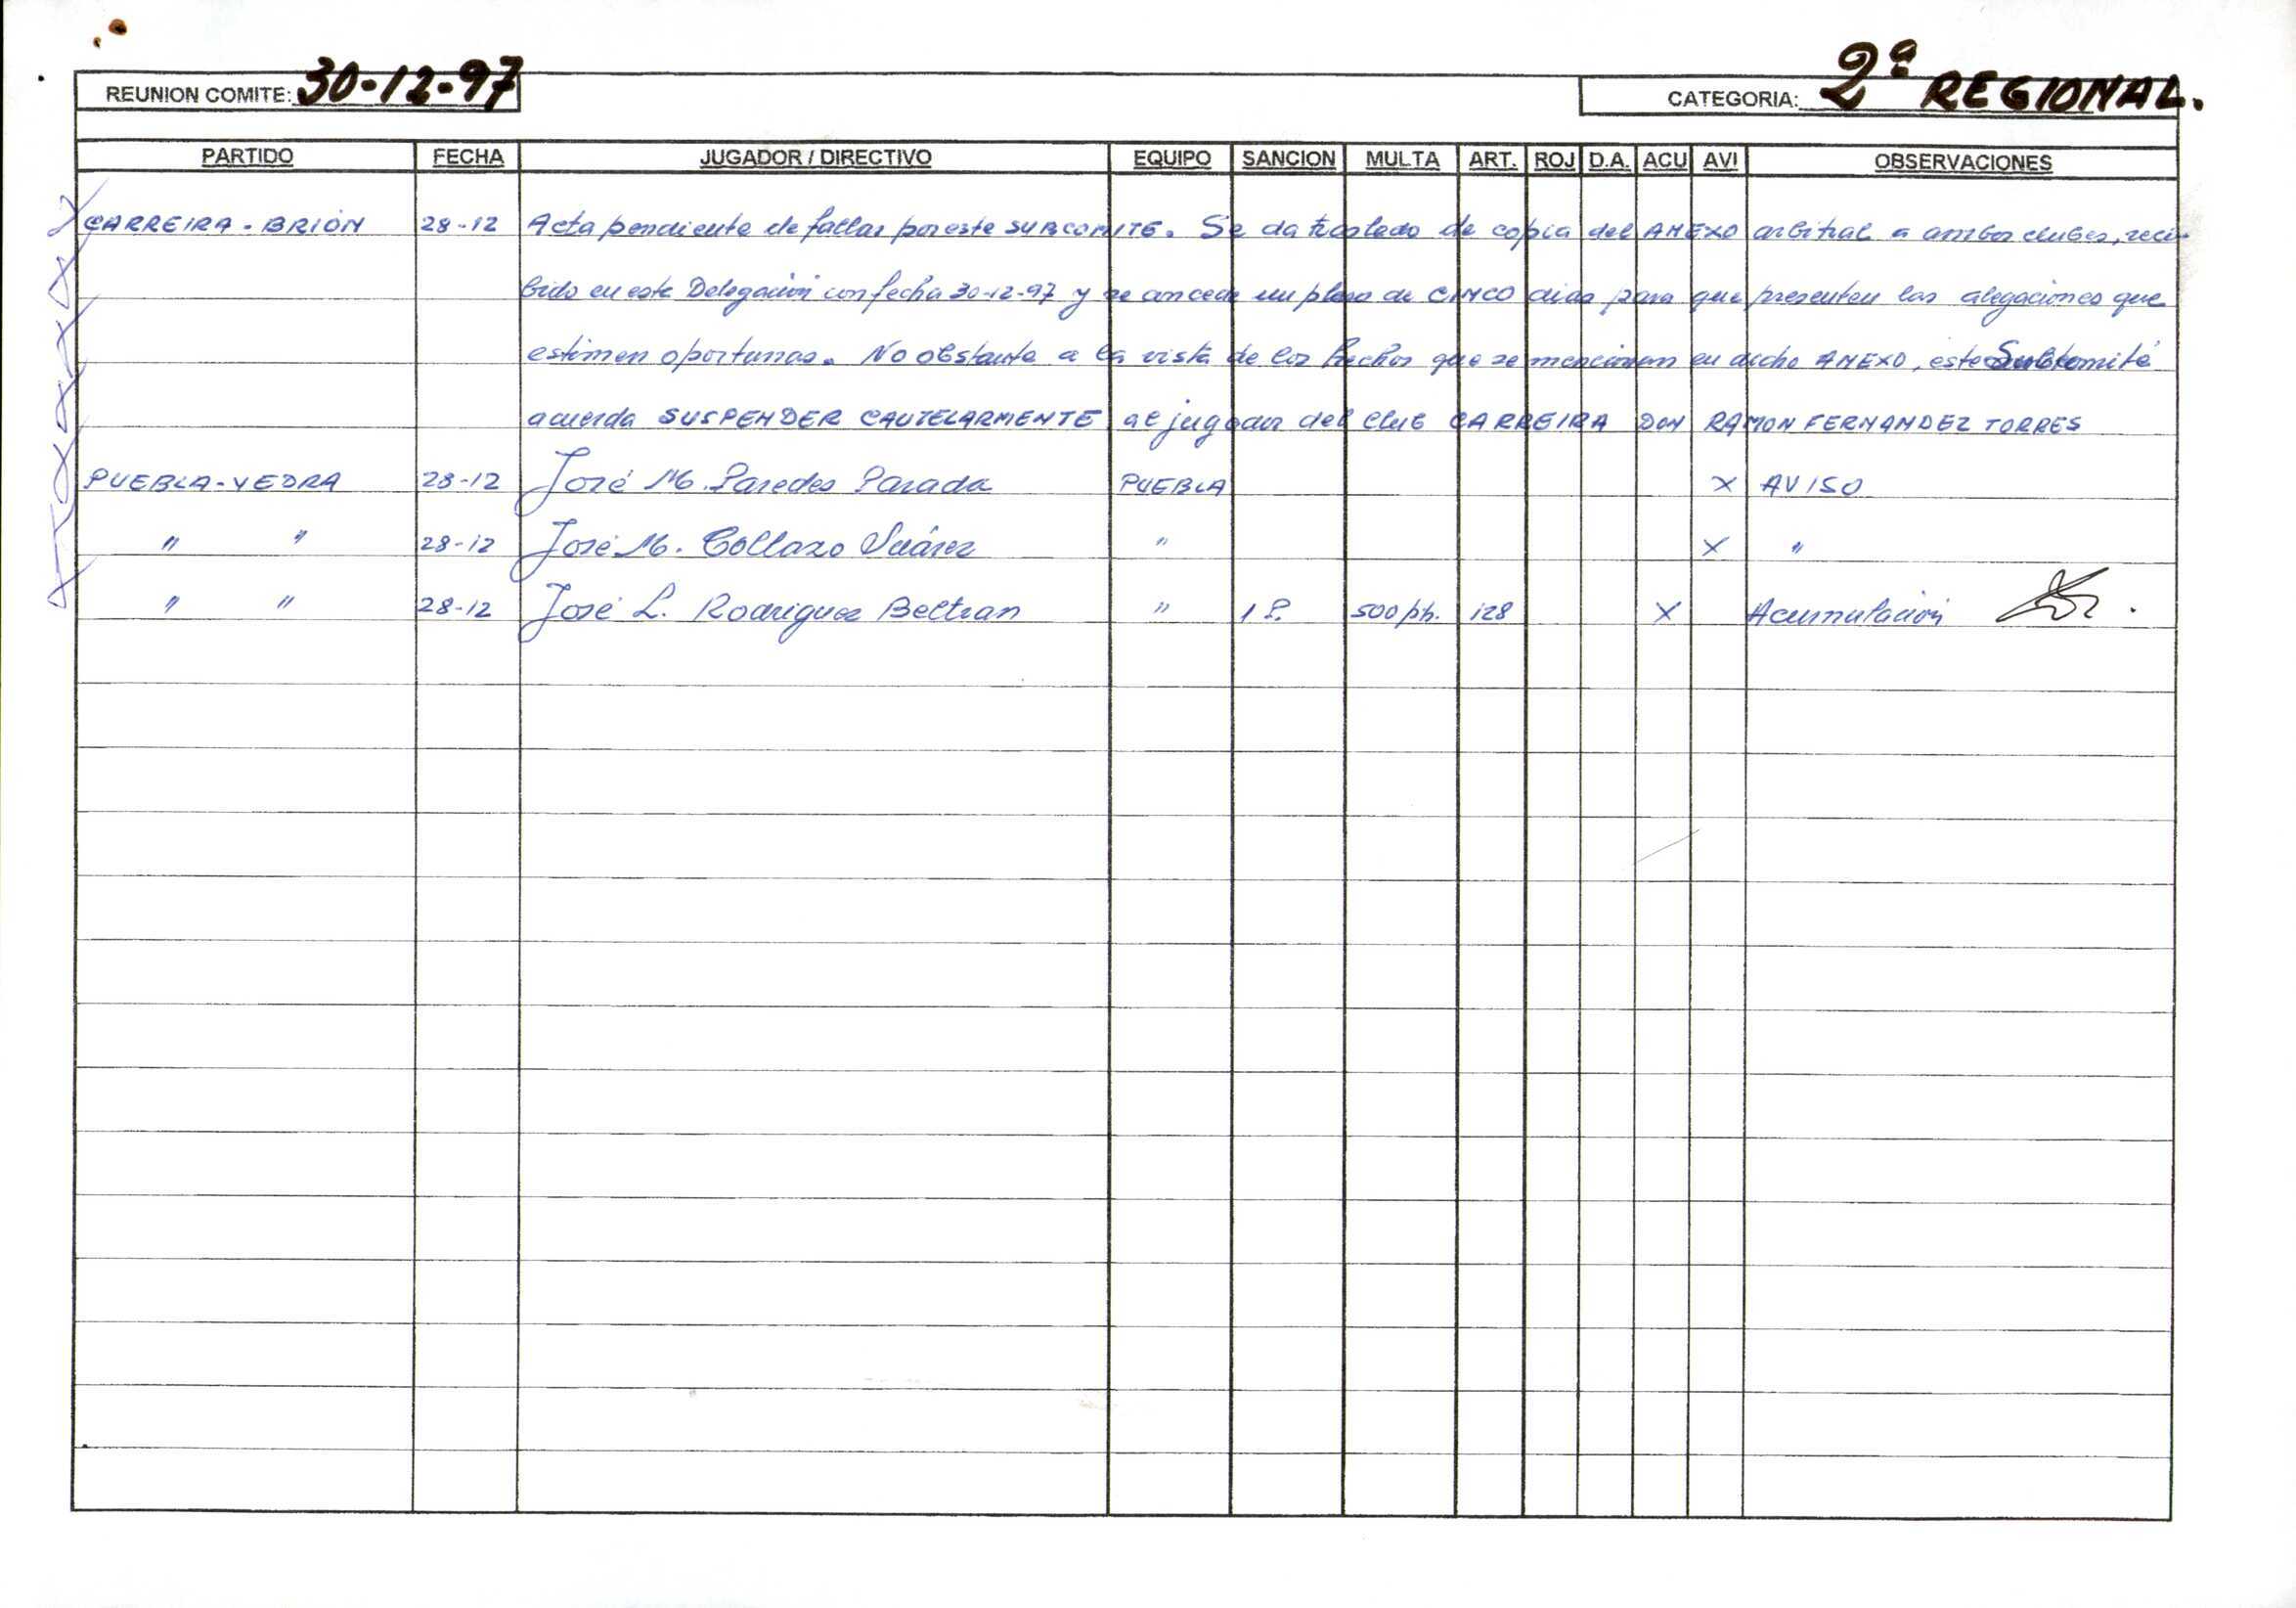 REUNION COMITE: 30-12-97 CATEGORIA: 2ª REGIONAL.
PARTIDO FECHA JUGADOR / DIRECTIVO EQUIPO SANCION MULTA ART. ROJ D.A. ACU AVI OBSERVACIONES
CARREIRA - BRIÓN 28-12 Acta pendiente de fallar por este SUBCOMITE. Se da traslado de copia del ANEXO arbitral a ambos clubes, reci-
bido en esta Delegación con fecha 30-12-97 y se concede un plazo de CINCO dias para que presenten las alegaciones que
estimen oportunas. No obstante a la vista de los hechos que se mencionan en dicho ANEXO, este Subcomité
acuerda SUSPENDER CAUTELARMENTE al jugador del club CARREIRA DON RAMON FERNANDEZ TORRES
PUEBLA - VEDRA 28-12 José M. Paredes Parada PUEBLA X AVISO
" " 28-12 José M. Collazo Suárez " X "
" " 28-12 José L. Rodriguez Beltran " 1 P. 500 pts. 128 X Acumulación